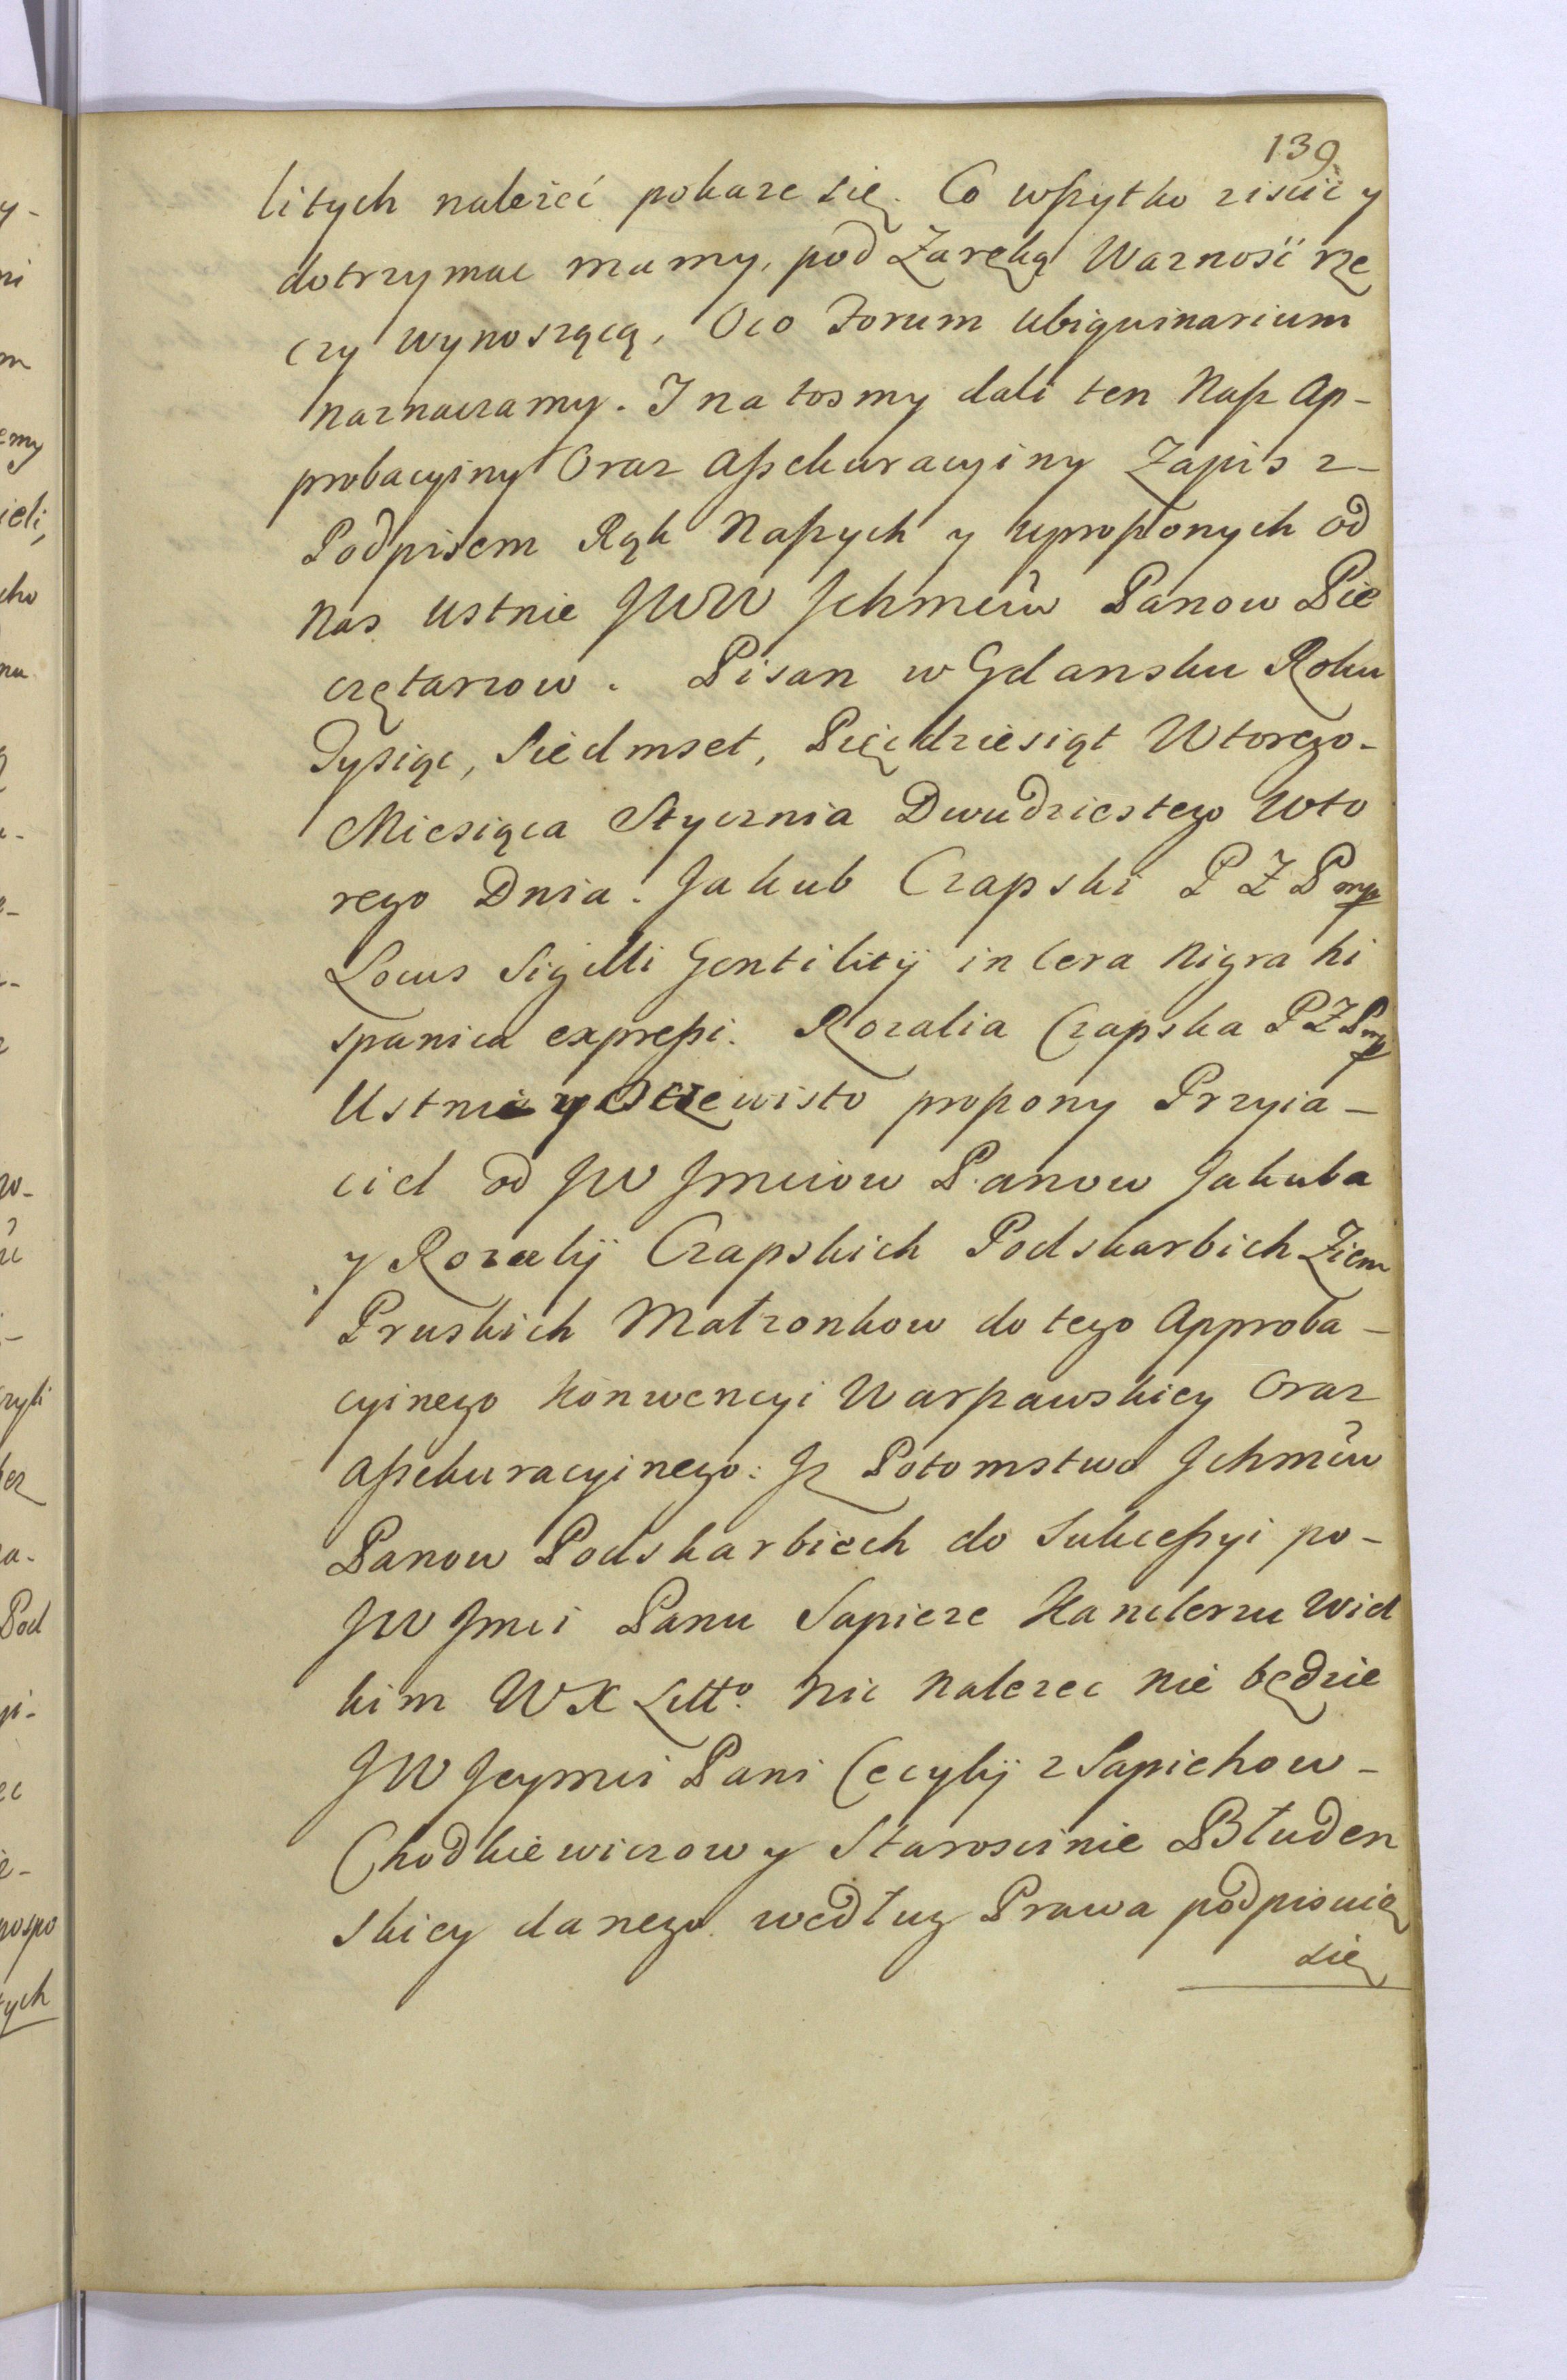 139
litych należeć pokaze się. Co wszytko ziscic y
dotrzymac mamy, pod Zaręką Waznosci rze
czy wynoszącą, Oco Forum Ubiquinarium
naznaczamy. I na tosmy dali ten Nasz Ap-
probacyiny Oraz Assekuracyiny Zapis z-
Podpisem Rąk Naszych y uproszonych od
Nas Ustnie JWW Jchmciow Panow Pie
czętarzow. Pisan w Gdansku Roku
Tysiąc, Siedmset, Pięćdziesiąt Wtorego-
Miesiąca Stycznia Dwudziestego Wto
rego Dnia. Jakub Czapski P Z P mp
Locus Sigilli Gentilitij in Cera Nigra hi
spanica expressi. Rozalia Czapska P Z P mp
Ustnie y Oczewisto proszony Przyia-
ciel od JW Jmciow Panow Jakuba
y Rozalij Czapskich Podskarbich Ziem
Pruskich Małzonkow do tego Approba-
cyinego Konwencyi Warszawskiey Oraz
Assekuracyinego: Jz Potomstwo Jchmciow
Panow Podskarbiech do Sukcessyi po-
JW Jmci Panu Sapieze Kanclerzu Wiel
kim W X Litto. Nic Nalezec Nie będzie
JW Jeymci Pani Cecylij z Sapiehow-
Chodkiewiczowy Staroscinie Błuden
skiey danego według Prawa podpisuię
się